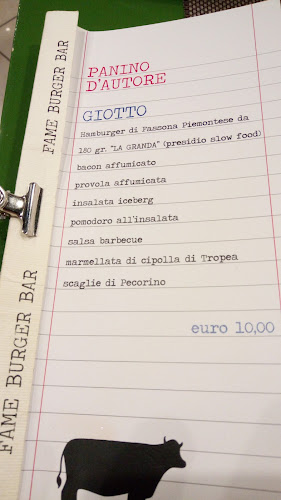 FAME BURGER BAR
FAME BURGER BAR
PANINO
D'AUTORE
GIOTTO
Hamburger di Fassona Piemontese da
180 gr. "LA GRANDA" (presidio slow food)
bacon affumicato
provola affumicata
insalata iceberg
pomodoro all'insalata
salsa barbecue
marmellata di cipolla di Tropea
scaglie di Pecorino
euro 10,00